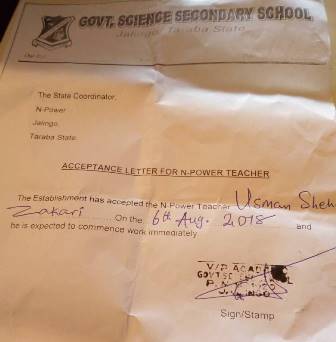 GOVT. SCIENCE SECONDARY SCHOOL
Jalingo, Taraba State
The State Coordinator,
N-Power
Jalingo,
Taraba State.
ACCEPTANCE LETTER FOR N-POWER TEACHER
The Establishment has accepted the N-Power Teacher Usman Sheh
Zakari On the 6th Aug. 2018 and
he is expected to commence work immediately
V/P ACAD
GOVT SC
P.
Sign/Stamp